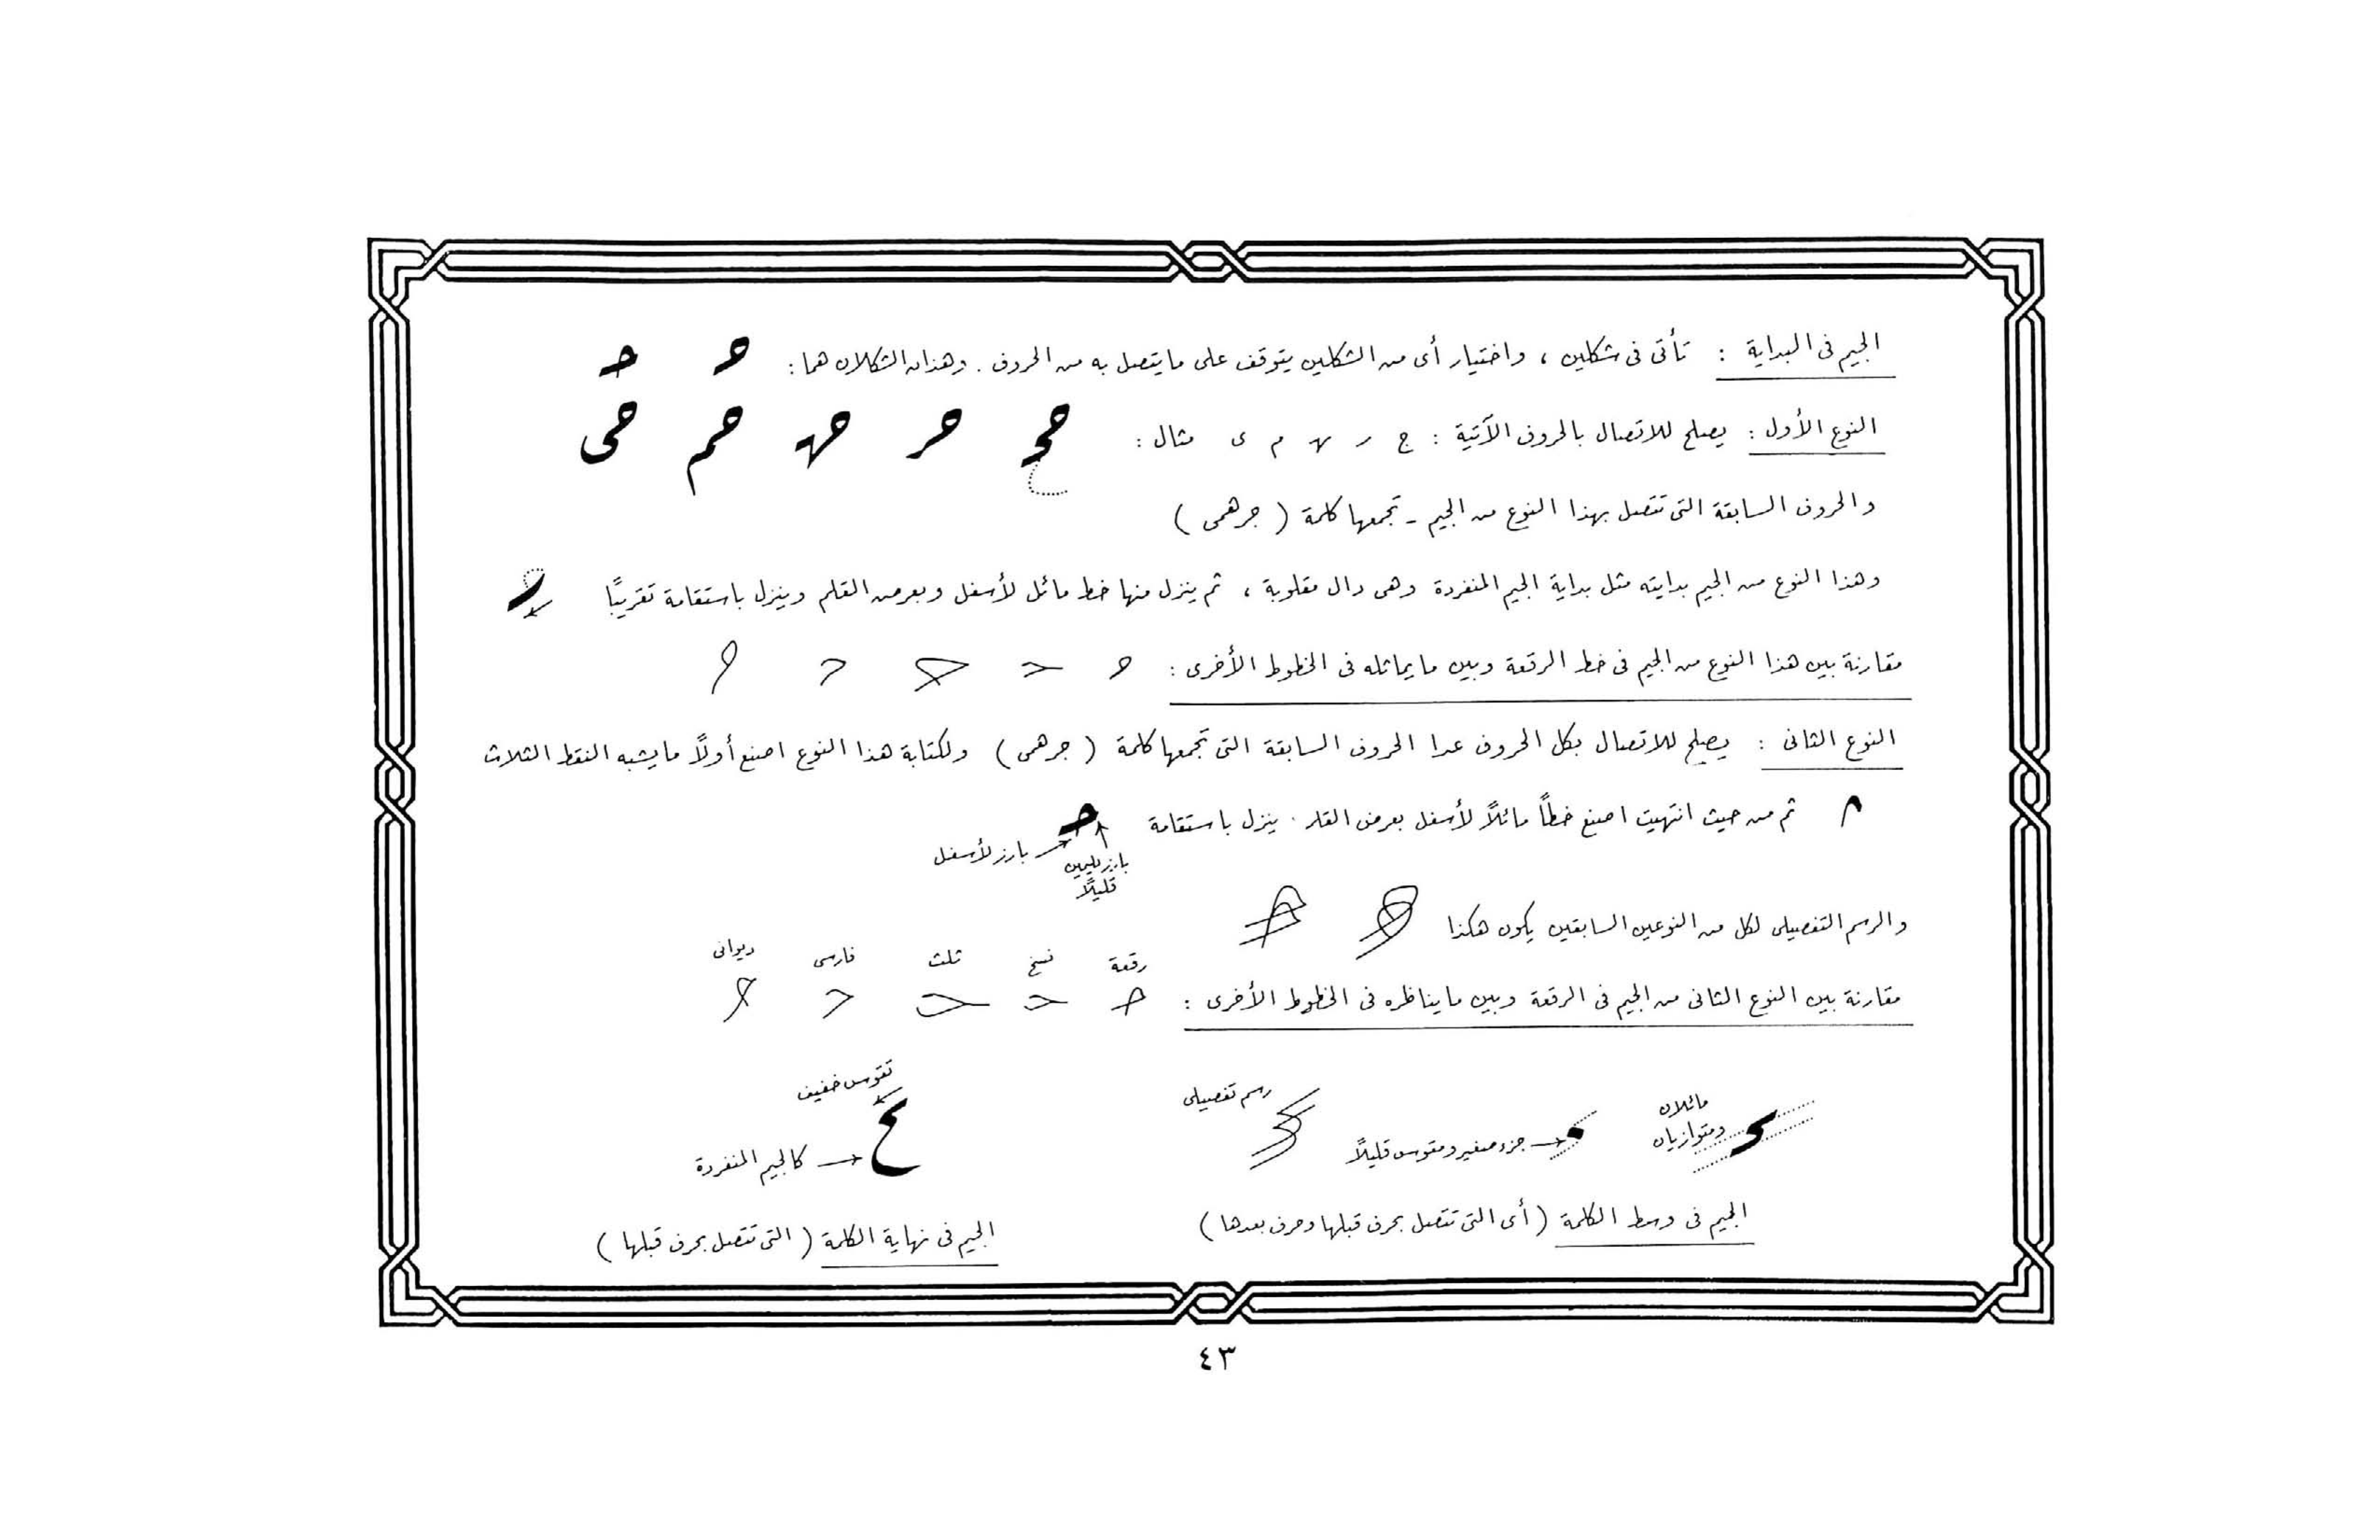 الجيم فى البداية : تأتى فى شكلين ، واختيار أى من الشكلين يتوقف على ما يتصل به من الحروف . وهذان الشكلان هما : حـ حـ
النوع الأول : يصلح للاتصال بالحروف الآتية : ج ر هـ م ى مثال : حج حر حهـ حم حى
والحروف السابقة التى تتصل بهذا النوع من الجيم - تجمعها كلمة ( جرهمى )
وهذا النوع من الجيم بدايته مثل بداية الجيم المنفردة وهى دال مقلوبة ، ثم ينزل منها خط مائل لأسفل وبعرض القلم وينزل باستقامة تقريبًا
مقارنة بين هذا النوع من الجيم فى خط الرقعة وبين ما يماثله فى الخطوط الأخرى : حـ حـ حـ حـ حـ
النوع الثانى : يصلح للاتصال بكل الحروف عدا الحروف السابقة التى تجمعها كلمة ( جرهمى ) ولكتابة هذا النوع اصنع أولًا ما يشبه النقط الثلاث
ثم من حيث انتهيت اصنع خطًا مائلًا لأسفل بعرض القلم . ينزل باستقامة حـ
بارز لليمين قليلًا
بارز لأسفل
والرسم التفصيلى لكل من النوعين السابقين يكون هكذا حـ حـ
رقعة نسخ ثلث فارسى ديوانى
مقارنة بين النوع الثانى من الجيم فى الرقعة وبين ما يناظره فى الخطوط الأخرى : حـ حـ حـ حـ حـ
مائلان ومتوازيان
جزء صغير ومقوس قليلًا
رسم تفصيلى
تقوس خفيف
كالجيم المنفردة
الجيم فى وسط الكلمة ( أى التى تتصل بحرف قبلها وحرف بعدها )
الجيم فى نهاية الكلمة ( التى تتصل بحرف قبلها )
٤٣